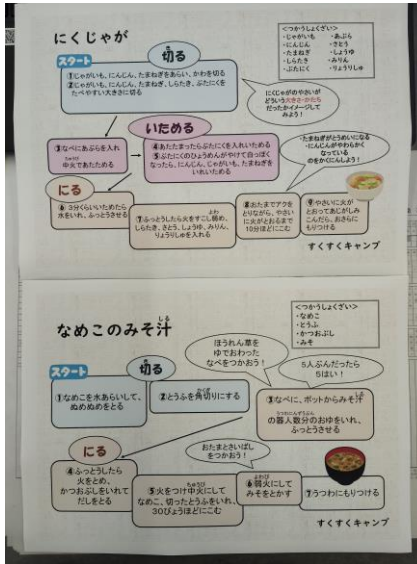 にくじゃが
<つかうしょくざい>
・じゃがいも ・あぶら
・にんじん ・さとう
・たまねぎ ・しょうゆ
・しらたき ・みりん
・ぶたにく ・りょうりしゅ
スタート
切る
①じゃがいも、にんじん、たまねぎをあらい、かわを切る
②じゃがいも、にんじん、たまねぎ、しらたき、ぶたにくを
たべやすい大きさに切る
にくじゃがのやさいが
どういう大きさ・かたち
だったかイメージして
みよう!
いためる
③なべにあぶらを入れ
中火であたためる
④あたたまったらぶたにくを入れいためる
⑤ぶたにくのひょうめんがやけて白っぽく
なったら、にんじん、じゃがいも、たまねぎを
いれいためる
・たまねぎがとうめいになる
・にんじんがやわらかく
なっている
のをかくにんしよう!
にる
⑥3分くらいいためたら
水をいれ、ふっとうさせる
⑦ふっとうしたら火をすこし弱め、
しらたき、さとう、しょうゆ、みりん、
りょうりしゅを入れる
⑧おたまでアクを
とりながら、やさい
に火がとおるまで
10分ほどにこむ
⑨やさいに火が
とおってあじがしみ
こんだら、おさらに
もりつける
すくすくキャンプ
なめこのみそ汁
<つかうしょくざい>
・なめこ
・とうふ
・かつおぶし
・みそ
ほうれん草を
ゆでおわった
なべをつかおう!
5人ぶんだったら
5はい!
スタート
切る
①なめこを水あらいして、
ぬめぬめをとる
②とうふを角切りにする
③なべに、ポットからみそ汁
の器人数分のおゆをいれ、
ふっとうさせる
にる
おたまとさいばし
をつかおう!
④ふっとうしたら
火をとめ、
かつおぶしをいれて
だしをとる
⑤火をつけ中火にして
なめこ、切ったとうふをいれ、
30びょうほどにこむ
⑥弱火にして
みそをとかす
⑦うつわにもりつける
すくすくキャンプ